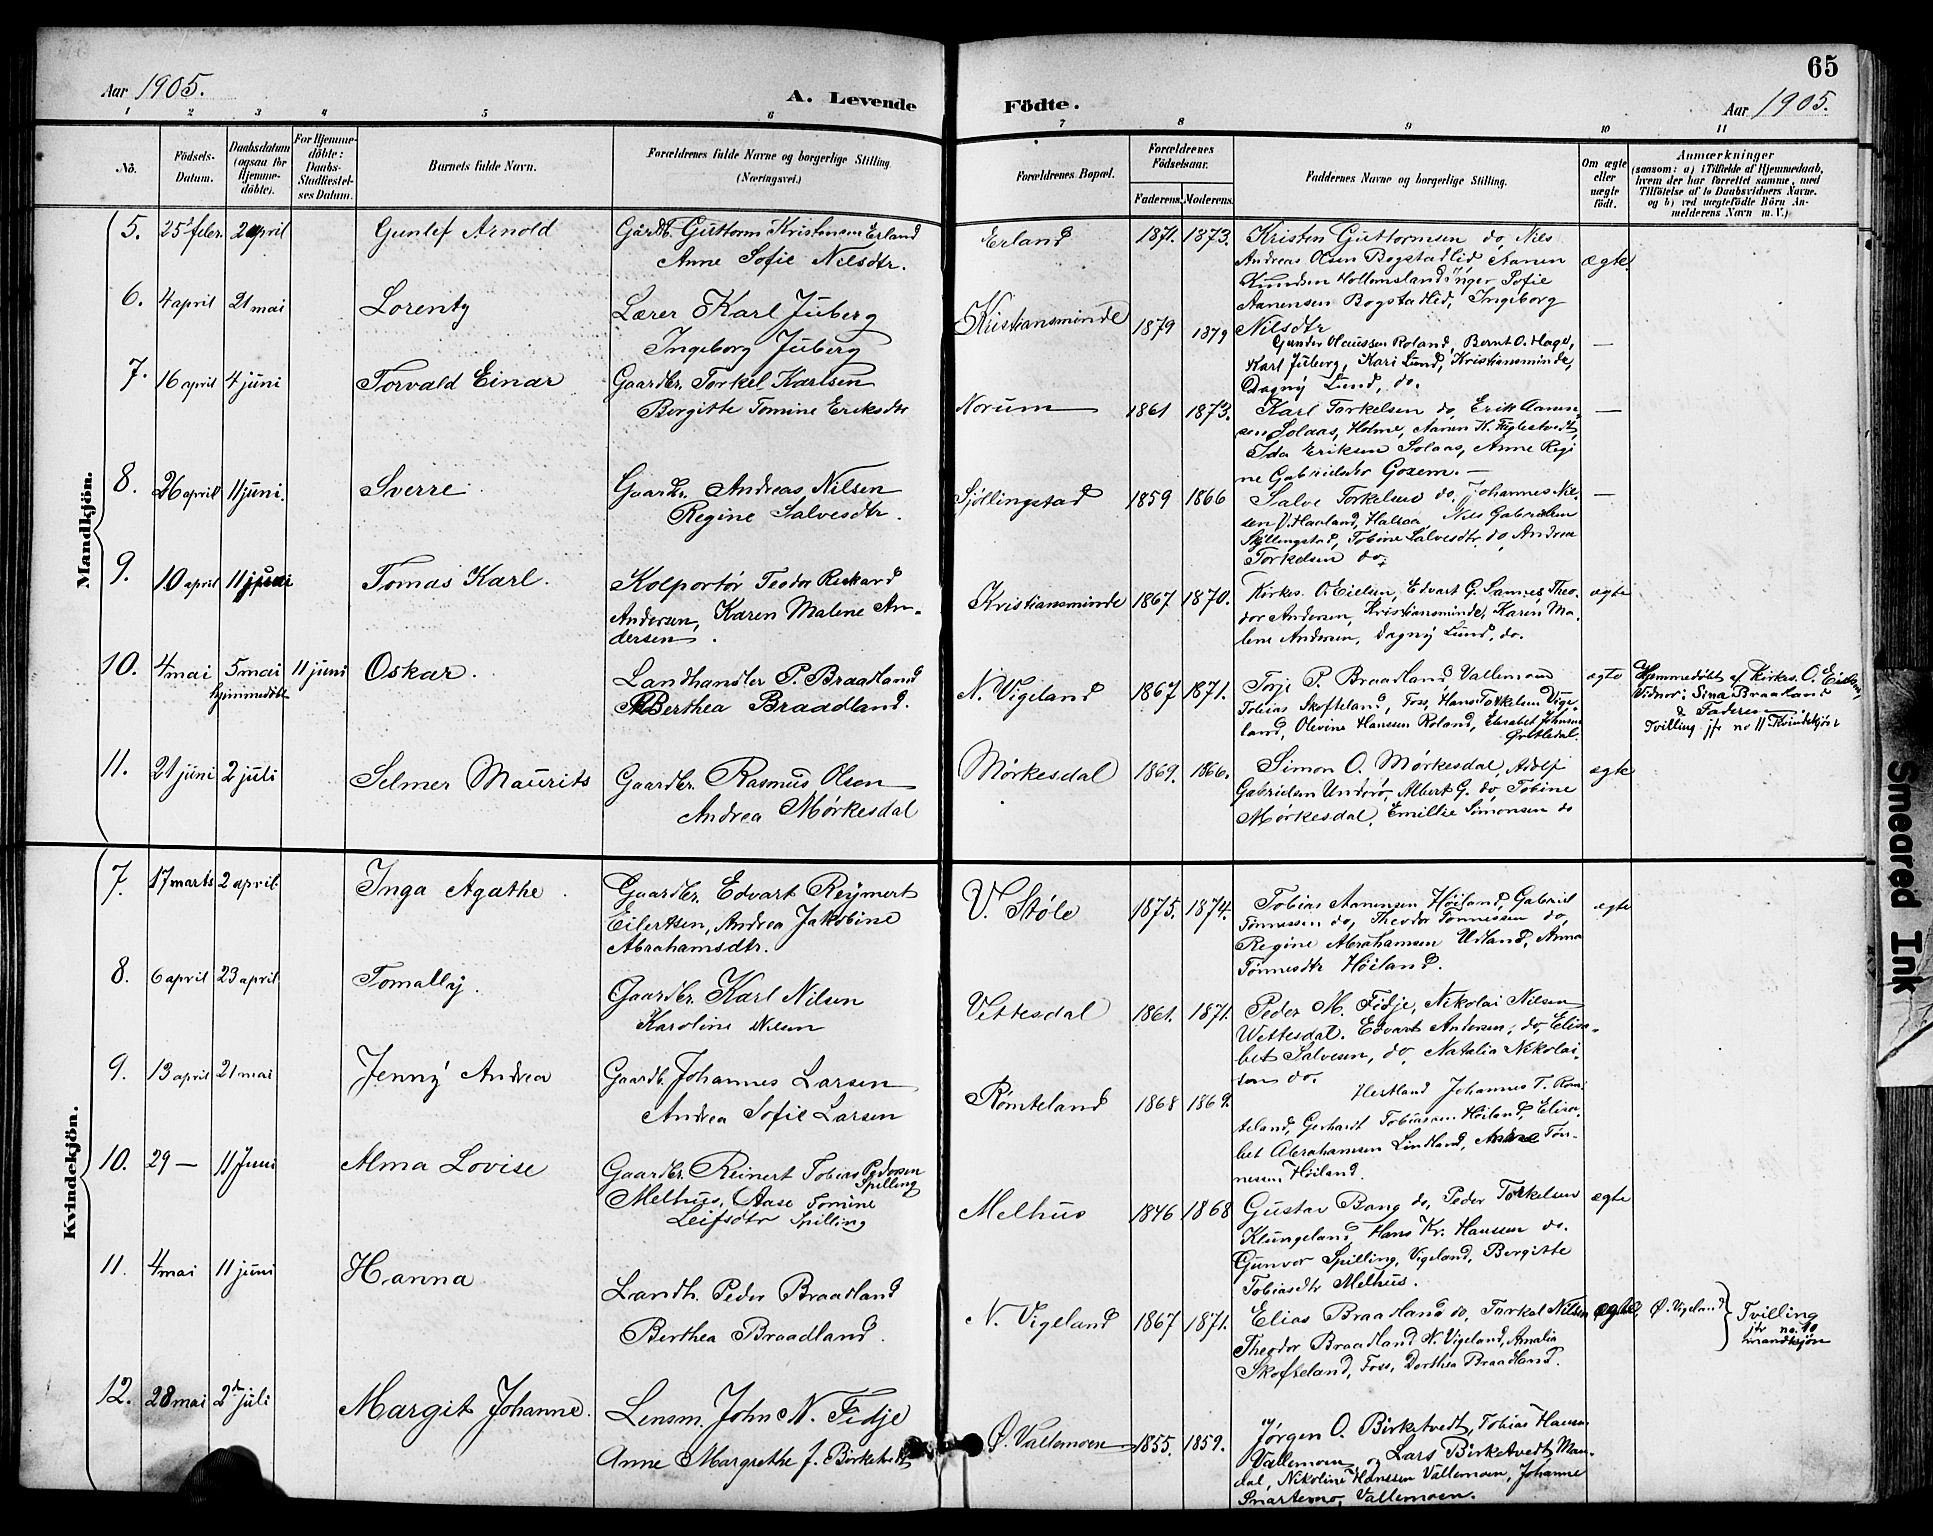 65
Aar 1905.
A. Levende Födte.
Aar 1905.
1 2 3 4 5 6 7 8 9 10 11
No.
Födsels-Datum.
Daabsdatum (ogsaa for Hjemme-döbte).
For Hjemme-döbte: Daabs-Stadfæstel-ses Datum.
Barnets fulde Navn.
Forældrenes fulde Navne og borgerlige Stilling. (Næringsvei.)
Forældrenes Bopæl.
Forældrenes Födselsaar.
Faderens. Moderens.
Faddernes Navne og borgerlige Stilling.
Om ægte eller uægte födt.
Anmærkninger
(saasom: a) i Tilfælde af Hjemmedaab, hvem der har forrettet samme, med Tilföielse af to Daabsvidners Navne. og b) ved uægtefödte Börn An-melderens Navn m. V.)
Mandkjön.
5. 25 febr. 2 april Gunlef Arnold
Gårdb. Guttorm Kristensen Erland
Anne Sofie Nilsdtr.
Erland 1871. 1873.
Kristen Guttormsen do, Nils
Andreas Olsen Bogstadlid, Aanen
Hollemsland, Inger Sofie
Aanensen Bogstadlid, Ingeborg
Nilsdtr
ægte.
6. 4 april 21 mai Lorenty
Lærer Karl Juberg
Ingeborg Juberg
Kristiansminde 1879 1879
Gunder Olaussen Roland, Bernt O. Hage,
Karl Juberg, Kari Lund, Kristiansminde,
Dagny Lund, do.
—
7. 16 april 4 juni Torvald Einar
Gaardbr. Torkel Karlsen
Bergitte Tomine Eriksdtr
Norum 1861 1873.
Karl Torkelsen do, Erik Aanen-
sen Solaas, Holme, Aanen K. Fuglestvedt,
Ida Eriksen Solaas, Anne Regi
ne Gabrielsdtr Goxem. —
—
8. 26 april 11 juni. Sverre
Gaardbr. Andreas Nilsen
Regine Salvesdtr.
Sjöllingstad 1859 1866
Salve Torkelsen do, Johannes Nil-
sen V. Haaland, Halsaa, Nils Gabrielsen
Skjöllingstad, Tobine Salvesdtr. do, Andrea
Torkelsen do.
—
9. 10 april 11 juni Tomas Karl.
Kolportør Teodor Rickard
Andersen, Karen Malene An-
dersen.
Kristiansminde 1867 1870.
Kirkes. O. Eielsen, Edvart G. Sannes, Theo-
dor Andersen, Kristiansminde, Karen Ma-
lene Andersen, Dagny Lund, do.
ægte
10. 4 mai 5 mai hjemmedöbt 11 juni Oskar.
Landhandler P. Braadland
Berthea Braadland.
N. Vigeland 1867 1871.
Torje P. Braadland Vallemoen
Tobias Skofteland, Foss, Hans Torkelsen Vige-
land, Olevine Hanssen Roland, Elisabet Johnsen
Øvstledal.
ægte
Hjemmedöbt af Kirkes. O. Eielsen,
Vidner: Sina Braadland
& Faderen
Tvilling jfr no 11 Kvindekjön
11. 21 juni 2 juli Selmer Maurits
Gaardbr. Rasmus Olsen
Andrea Mørkesdal
Mørkesdal 1869. 1866.
Simon O. Mørkesdal, Adolf
Gabrielsen Underø, Albert G. do, Tobine
Mørkesdal, Emillie Simonsen do
ægte
Kvindekjön.
7. 17 marts 2 april. Inga Agathe.
Gaardbr. Edvart Reymert
Eilertsen, Andrea Jakobine
Abrahamsdtr.
V. Støle 1875. 1874.
Tobias Aanensen Höiland, Gabriel
Tönnessen do, Theodor Tönnessen do,
Regine Abrahamsen Udland, Anna
Tönnesdtr Höiland.
ægte
8. 6 april 23 april Tomally.
Gaardbr. Karl Nilsen
Karoline Nilsen
Vettesdal 1861. 1871.
Peder M. Fidje, Nikolai Nilsen
Wettesdal. Edvart Andersen, do, Elisa-
bet Salvesen, do, Natalia Nikolai-
sen do.
9. 13 april 21 mai Jenny Andrea
Gaardb. Johannes Larsen
Andrea Sofie Larsen
Römteland 1868 1869.
Hestland Johannes T. Röm-
teland, Gerhardt Tobiassen Höiland, Elisa-
bet Abrahamsen Lindland, Andrea Tön-
nessen Höiland.
10. 29 — 11 Juni Alma Lovise
Gaardbr. Reinert Tobias Pedersen Spilling
Melhus, Aase Tomine
Leifsdtr Spilling
Melhus 1846 1868
Gustav Bang do, Peder Torkelsen
Klungeland, Hans Kr. Hansen do.
Gunvor Spilling, Vigeland, Bergitte
Tobiasdtr Melhus.
ægte
11. 4 mai 11 juni Hanna
Landh. Peder Braadland
Berthea Braadland.
N. Vigeland 1867 1871.
Elias Braadland do, Torkel Nilsen
Theodor Braadland N. Vigeland, Amalia
Skofteland, Foss, Dorthea Braadland.
ægte,
Ø. Vigeland
Tvilling
jfr no. 10
mandkjön
12. 28 mai 2 juli Margit Johanne.
Lensm. John N. Fidje
Anne Margrethe J. Birketvedt
Ø. Vallemoen 1855. 1859.
Jörgen O. Birketvedt, Tobias Hansen
Vallemoen, og Lars Birketvedt, Man-
dal, Nikoline Hanssen Vallemoen, Johanne
Snartemo, Vallemoen.
Smeared Ink